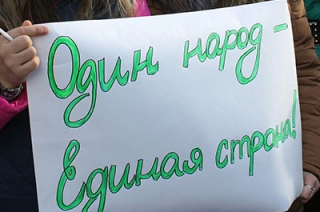 Один народ -
Единая страна!